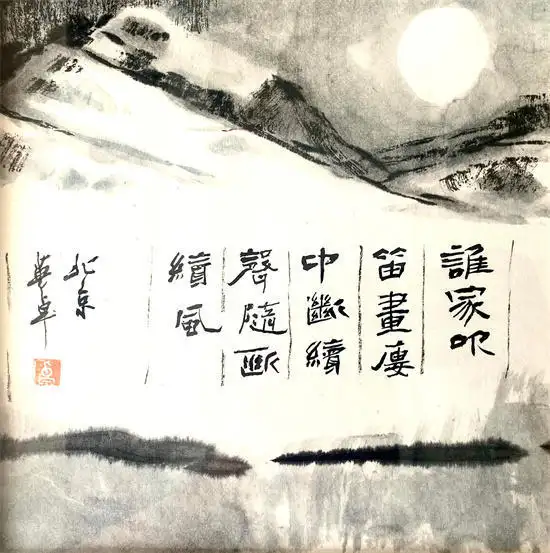 誰家吹
笛畫廔
中斷續
聲隨斷
續風
北京
英卓